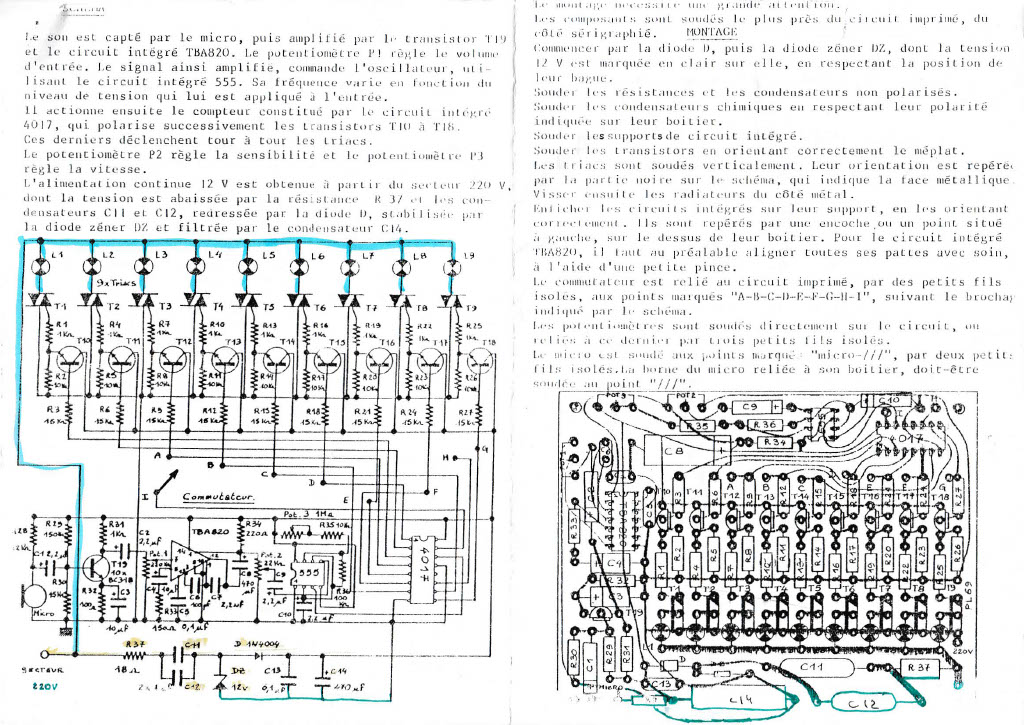 Le son est capté par le micro, puis amplifié par le transistor T19
et le circuit intégré TBA820. Le potentiomètre P1 règle le volume
d'entrée. Le signal ainsi amplifie, commande l'oscillateur, uti-
lisant le circuit intégré 555. Sa fréquence varie en fonction du
niveau de tension qui lui est appliqué à l'entrée.
Il actionne ensuite le compteur constitué par le circuit intégré
4017, qui polarise successivement les transistors T10 à T18.
Ces derniers déclenchent tour à tour les triacs.
Le potentiomètre P2 règle la sensibilité et le potentiomètre P3
règle la vitesse.
L'alimentation continue 12 V est obtenue à partir du secteur 220 V,
dont la tension est abaissée par la résistance R 37 et les con-
densateurs C11 et C12, redressée par la diode D, stabilisée par
la diode zéner DZ et filtrée par le condensateur C14.
L1 L2 L3 L4 L5 L6 L7 L8 L9
9xTriacs
T1 T2 T3 T4 T5 T6 T7 T8 T9
R1 R4 R7 R10 R13 R16 R19 R22 R25
1KΩ 1KΩ 1KΩ 1KΩ 1KΩ 1KΩ 1KΩ 1KΩ 1KΩ
T10 T11 T12 T13 T14 T15 T16 T17 T18
R2 R5 R8 R11 R14 R17 R20 R23 R26
R3 R6 R9 R12 R15 R18 R21 R24 R27
15KΩ
A B C D E F G H I
Commutateur.
Pot.3 1MΩ
R35 10K
TBA820
R34
220Ω
R29
150K
R31
1KΩ
C2
2,2µF
Pot.1
Pot.2
22KΩ
555
4017
C1 2,2µF
T19
BC318
R30
15K
R32
100Ω
C3
10µF
Micro
C4
R33
150Ω
C5
0,1µF
C6
C7
2,2µF
C8
470µF
C9
2,2µF
C10
R36
100KΩ
SECTEUR
220V
R37
18Ω
C11
C12
D 1N4004
DZ
12v
C13
0,1µF
C14
470µF
Le montage nécessite une grande attention.
Les composants sont soudés le plus près du circuit imprimé, du
côté sérigraphié. MONTAGE
Commencer par la diode D, puis la diode zéner DZ, dont la tension
12 V est marquée en clair sur elle, en respectant la position de
leur bague.
Souder les résistances et les condensateurs non polarisés.
Souder les condensateurs chimiques en respectant leur polarité
indiquée sur leur boitier.
Souder les supports de circuit intégré.
Souder les transistors en orientant correctement le méplat.
Les triacs sont soudés verticalement. Leur orientation est repérée
par la partie noire sur le schéma, qui indique la face métallique.
Visser ensuite les radiateurs du côté métal.
Enficher les circuits intégrés sur leur support, en les orientant
correctement. Ils sont repérés par une encoche ou un point situé
à gauche, sur le dessus de leur boitier. Pour le circuit intégré
TBA820, il faut au préalable aligner toutes ses pattes avec soin,
à l'aide d'une petite pince.
Le commutateur est relié au circuit imprimé, par des petits fils
isolés, aux points marqués "A-B-C-D-E-F-G-H-I", suivant le brochag
indiqué par le schéma.
Les potentiomètres sont soudés directement sur le circuit, ou
reliés à ce dernier par trois petits fils isolés.
Le micro est soudé aux points marqué: "micro-///", par deux petits
fils isolés. La borne du micro reliée à son boitier, doit-être
soudée au point "///".
POT3 POT2 C9 C10
R35 R36 R34
C8 4017
R33 TBA820
C4 R32 C3 T19
R30 C1 R29 R31
MICRO D C13 C14 C11 C12 R37
220V
PL69